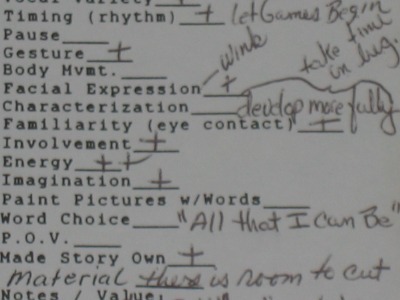 Vocal Variety +
Timing (rhythm) + let Games Begin
Pause
Gesture +
wink
take time in beg.
Body Mvmt.
Facial Expression +
Characterization develop more fully
Familiarity (eye contact) +
Involvement +
Energy ++
Imagination +
Paint Pictures w/Words
Word Choice "All that I Can Be"
P.O.V.
Made Story Own +
material there is room to cut
Notes / Value: